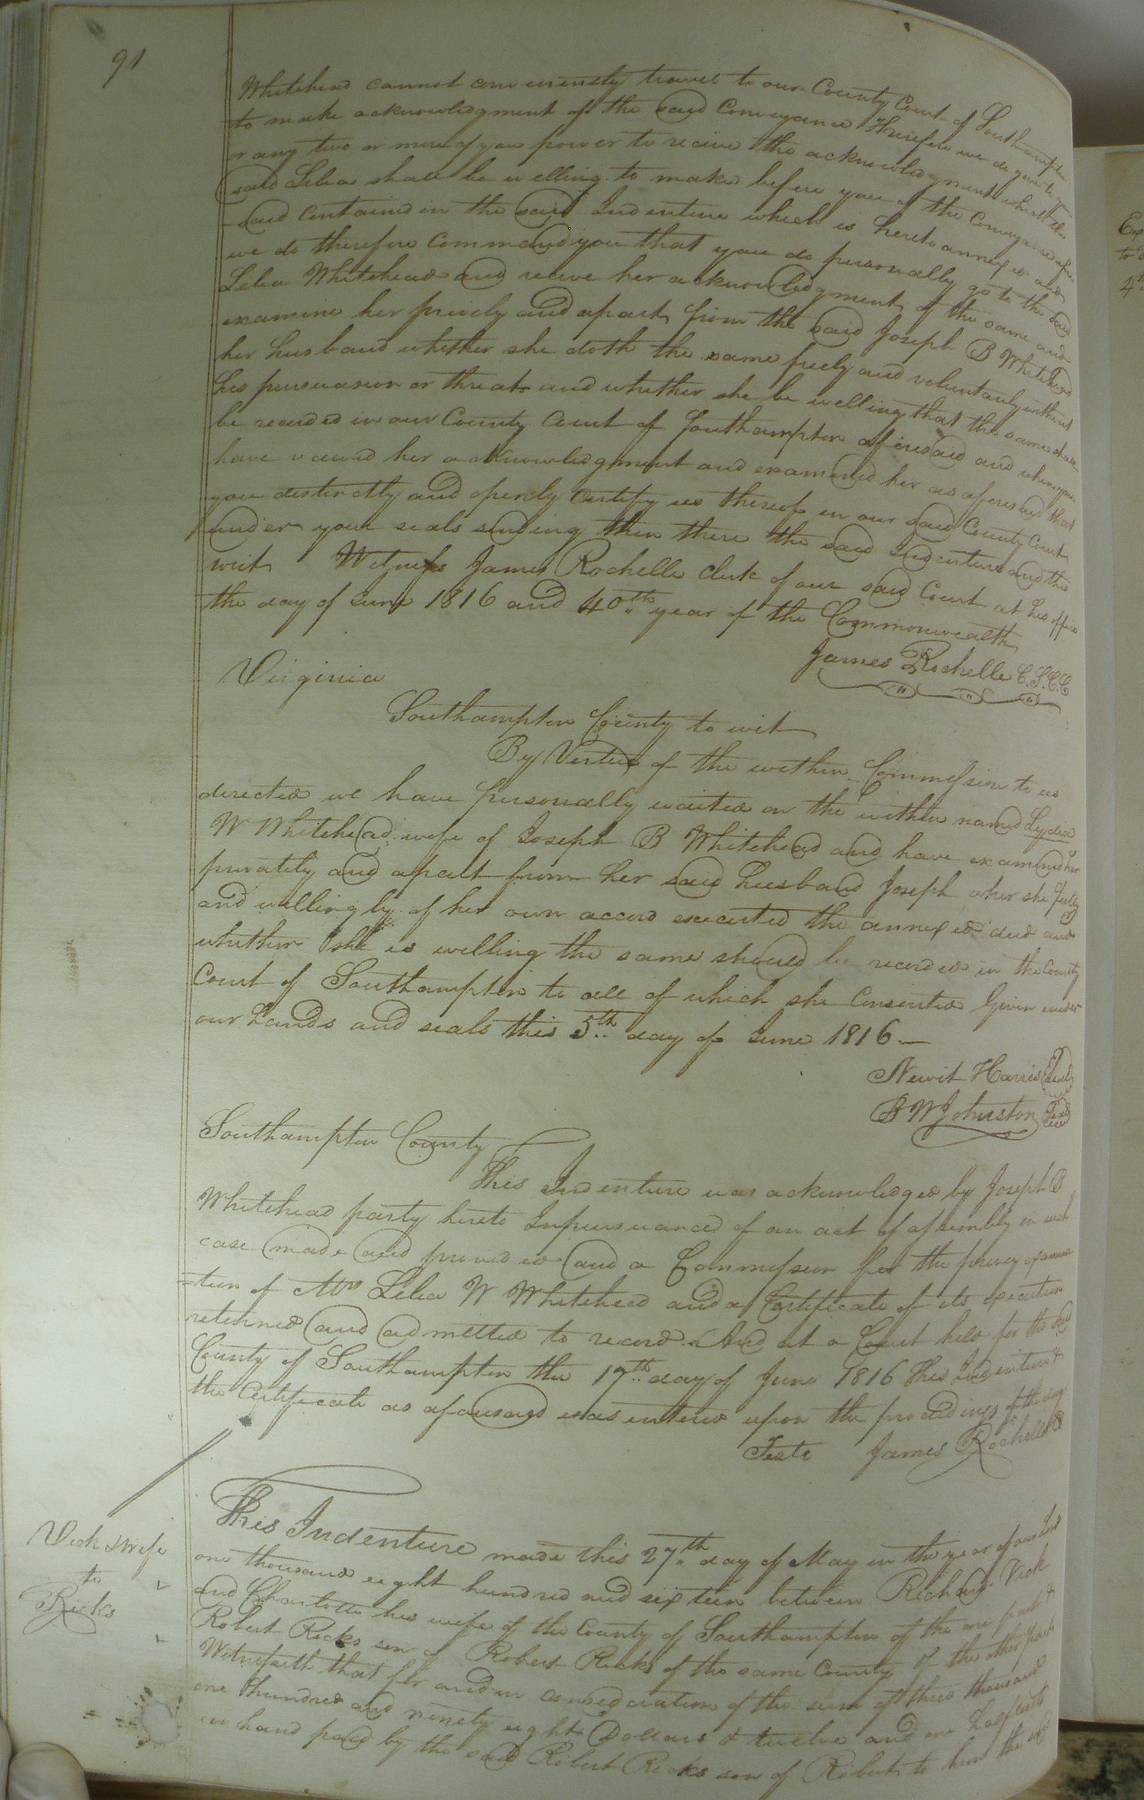 91
Whitehead cannot conveniently travel to our County Court of Southampton
to make acknowledgment of the said Conveyance Therefore we do give to you
or any two or more of you power to receive the acknowledgment which the
said Lelia shall be willing to make before you of the Conveyance
and Contained in the said Indenture which is hereto annexed and
we do therefore Command you that you do personally go to the said
Lelia Whitehead and receive her acknowledgment of the same and
examine her privily and apart from the said Joseph B Whitehead
her husband whether she doth the same freely and voluntarily without
his persuasion or threats and whether she be willing that the same shall
be recorded in our County Court of Southampton aforesaid and when you
have received her acknowledgment and examined her as aforesaid that
you distinctly and openly certify us thereof in our said County Court
under your seals sending then there the said Indenture and this
writ Witness James Rochelle Clerk of our said Court at his office
the day of June 1816 and 40th year of the Commonwealth
James Rochelle C.S.C.C
Virginia
Southampton County to wit
By Virtue of the within Commission to us
directed we have personally waited on the within named Lydia
W Whitehead wife of Joseph B Whitehead and have examined her
privately and apart from her said husband Joseph wher she freely
and willingly of her own accord executed the annexed deed and
whether she is willing the same should be recorded in the County
Court of Southampton to all of which she Consented Given under
our hands and seals this 5th day of June 1816
Newit Harris Seal
B W Johnston Seal
Southampton County
This Indenture was acknowledged by Joseph B
Whitehead party hereto Inpursuance of an act of assembly in such
case made and provided and a Commission for the privey examina
=tion of Mrs Lelia W Whitehead and a Certificate of its execution
returned and admitted to record. And at a Court held for the
County of Southampton the 17th day of June 1816 This Indenture &
the Certificate as aforesaid was entered upon the proceedings of the day
Teste James Rochelle
Vick & Wife
to
Ricks
This Indenture made this 27th day of May in the year of our Lord
one thousand eight hundred and sixteen between Richard Vick
and Charlotte his wife of the County of Southampton of the one part &
Robert Ricks son of Robert Ricks of the same County of the other part
Witnesseth that for and in consideration of the sum of three thousand
one hundred and ninety eight Dollars & twelve and one half cents
in hand paid by the said Robert Ricks son of Robert to him the said